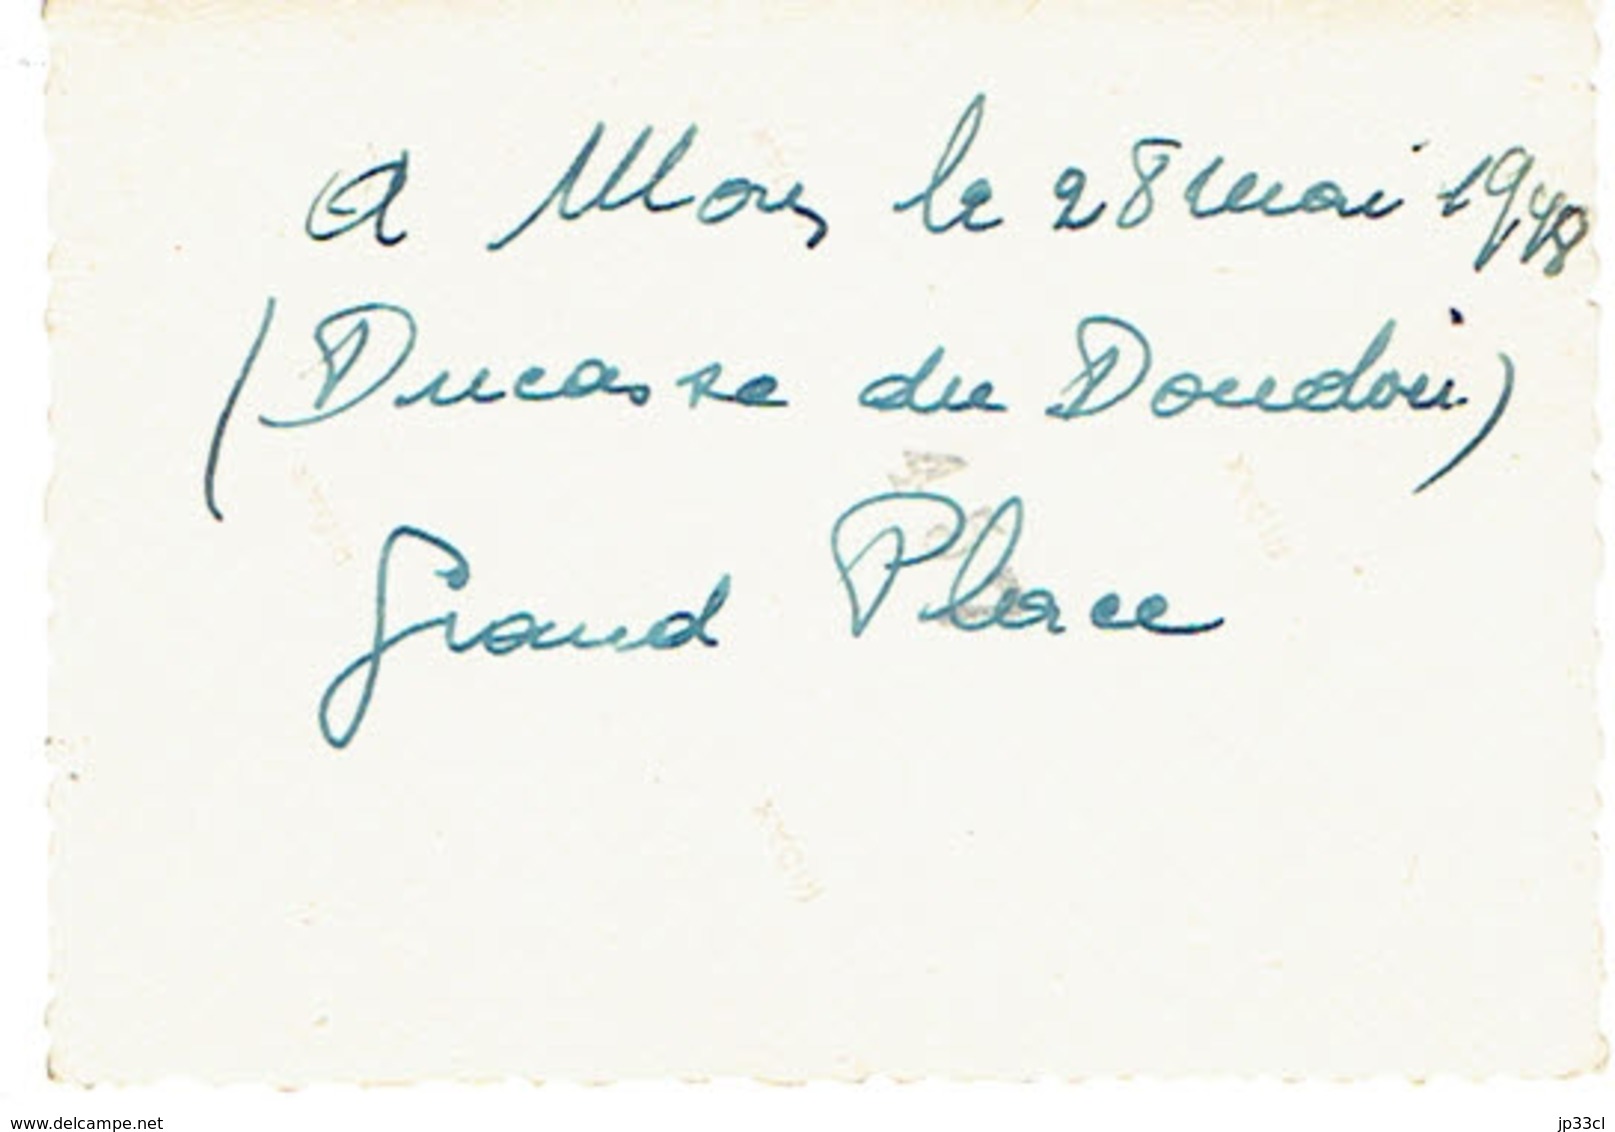 A Mons le 28 mai 1948
(Ducasse du Doudou)
Grand Place
www.delcampe.net
jp33cl